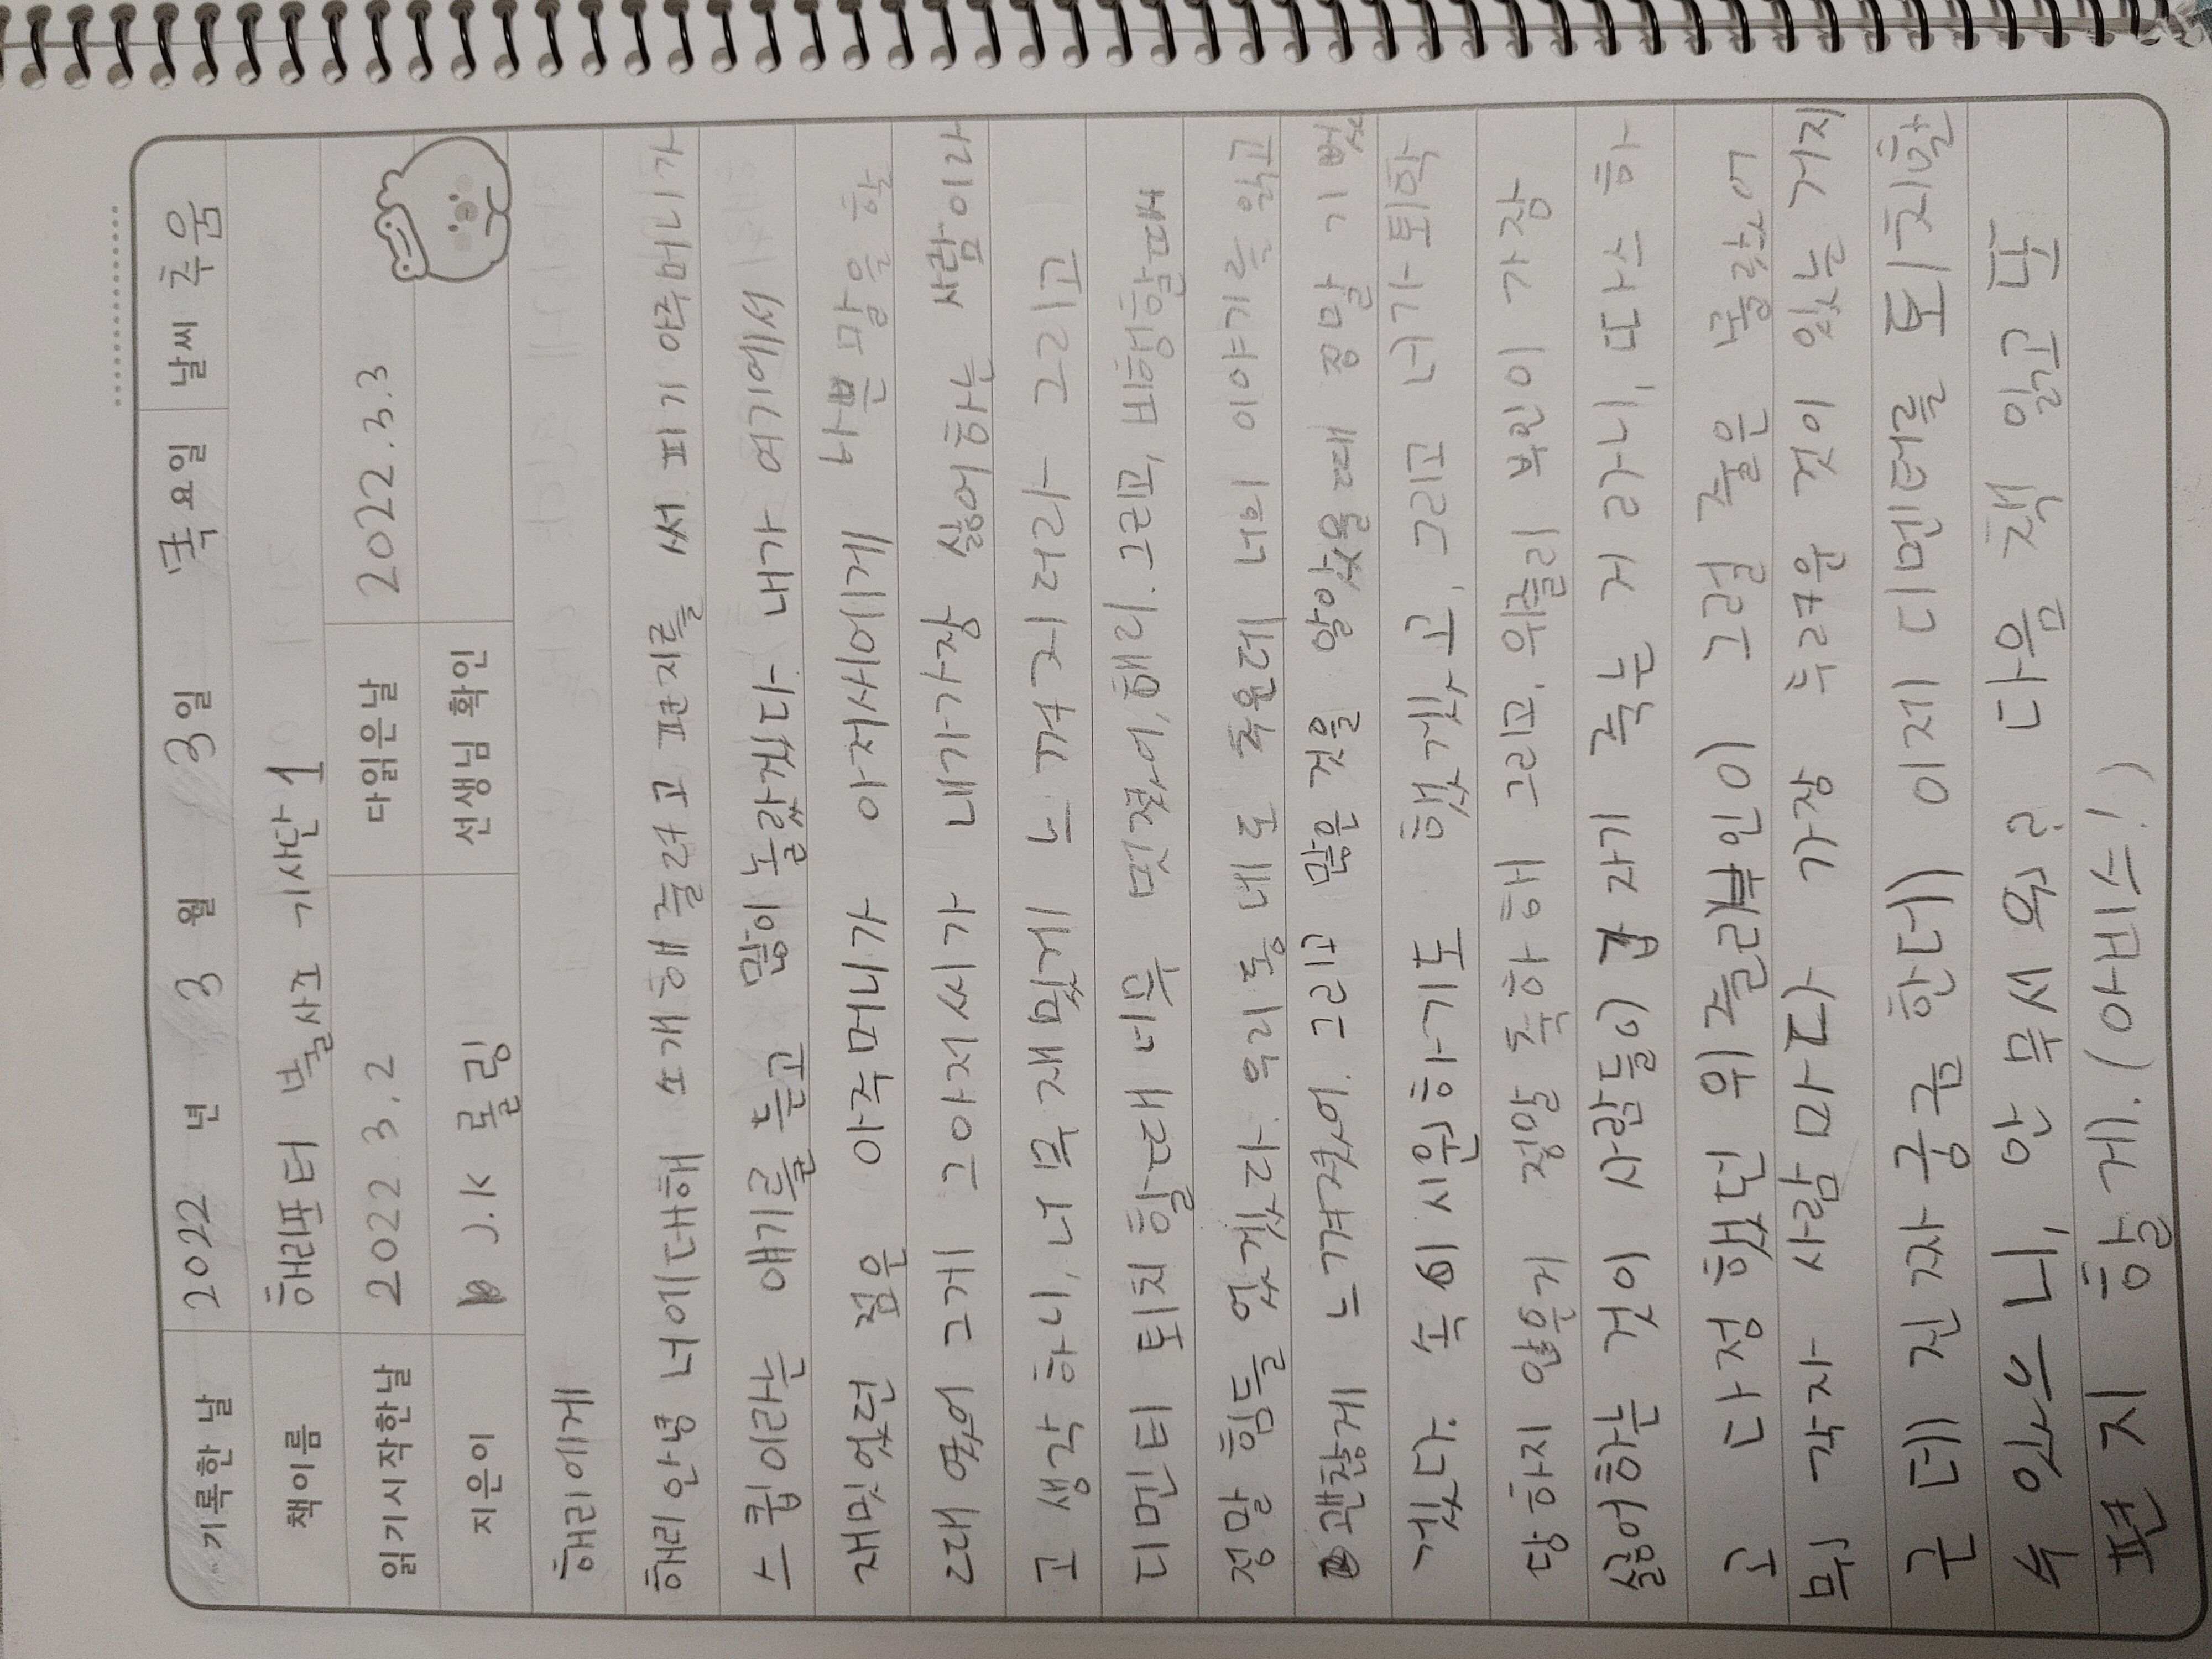 기록한 날 2022 년 3 월 3 일 목 요일 날씨 추움
책이름 해리포터 불사조 기사단 1
읽기시작한날 2022.3.2 다읽은날 2022.3.3
지은이 J.K 롤링 선생님 확인
해리에게
해리 안녕 너에대해 소개해 줄려고 편지를 써 피기 아주머니가
스큅이라는 얘기를 듣고 많이 놀랐겠다. 내가 여기에서
재밌었던 점은 아주머니가 아저씨에게 나쁜 말을 할
때 였어 그게 그아저씨가 내가가장 싫어하는 사람이라
고 생각 하니, 너무 재밌게 느껴지더라 그리고
디멘터 퇴치 할때 너무 멋졌어, 해리. 그리고, 비행할때
정말 힘들 었겠다. 우리 동네도 추운데 너의 이야기를 읽고
괜찮게 느껴졌어. 그리고 많은 것을 알았을때 정말 기뻤
겠다. 속이 시원하기도 했겠고, 그리고 너가 퇴학
당하지 않은거 정말 축하해 그리고, 위즐리 부인이 가장
싫어하는 것이 사람들이 갑자기 죽는 거라니, 따스하
고 다정했던 위즐리부인이 그럴 줄은 몰랐어
뭐 각자 사람마다 가장 두려운 것이 있는 거지
근데 진짜 궁금한데 이제 디멘터를 퇴치할
수 있으니, 안 무서워? 다음 책 읽고 또
편지 할게. (아비스!)